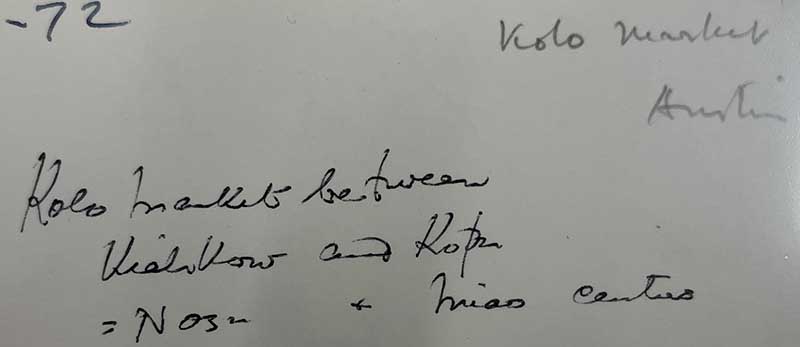 -72
Kolo Market
Austin
Kolo market between
and Kopu
= Nosu + Miao centres